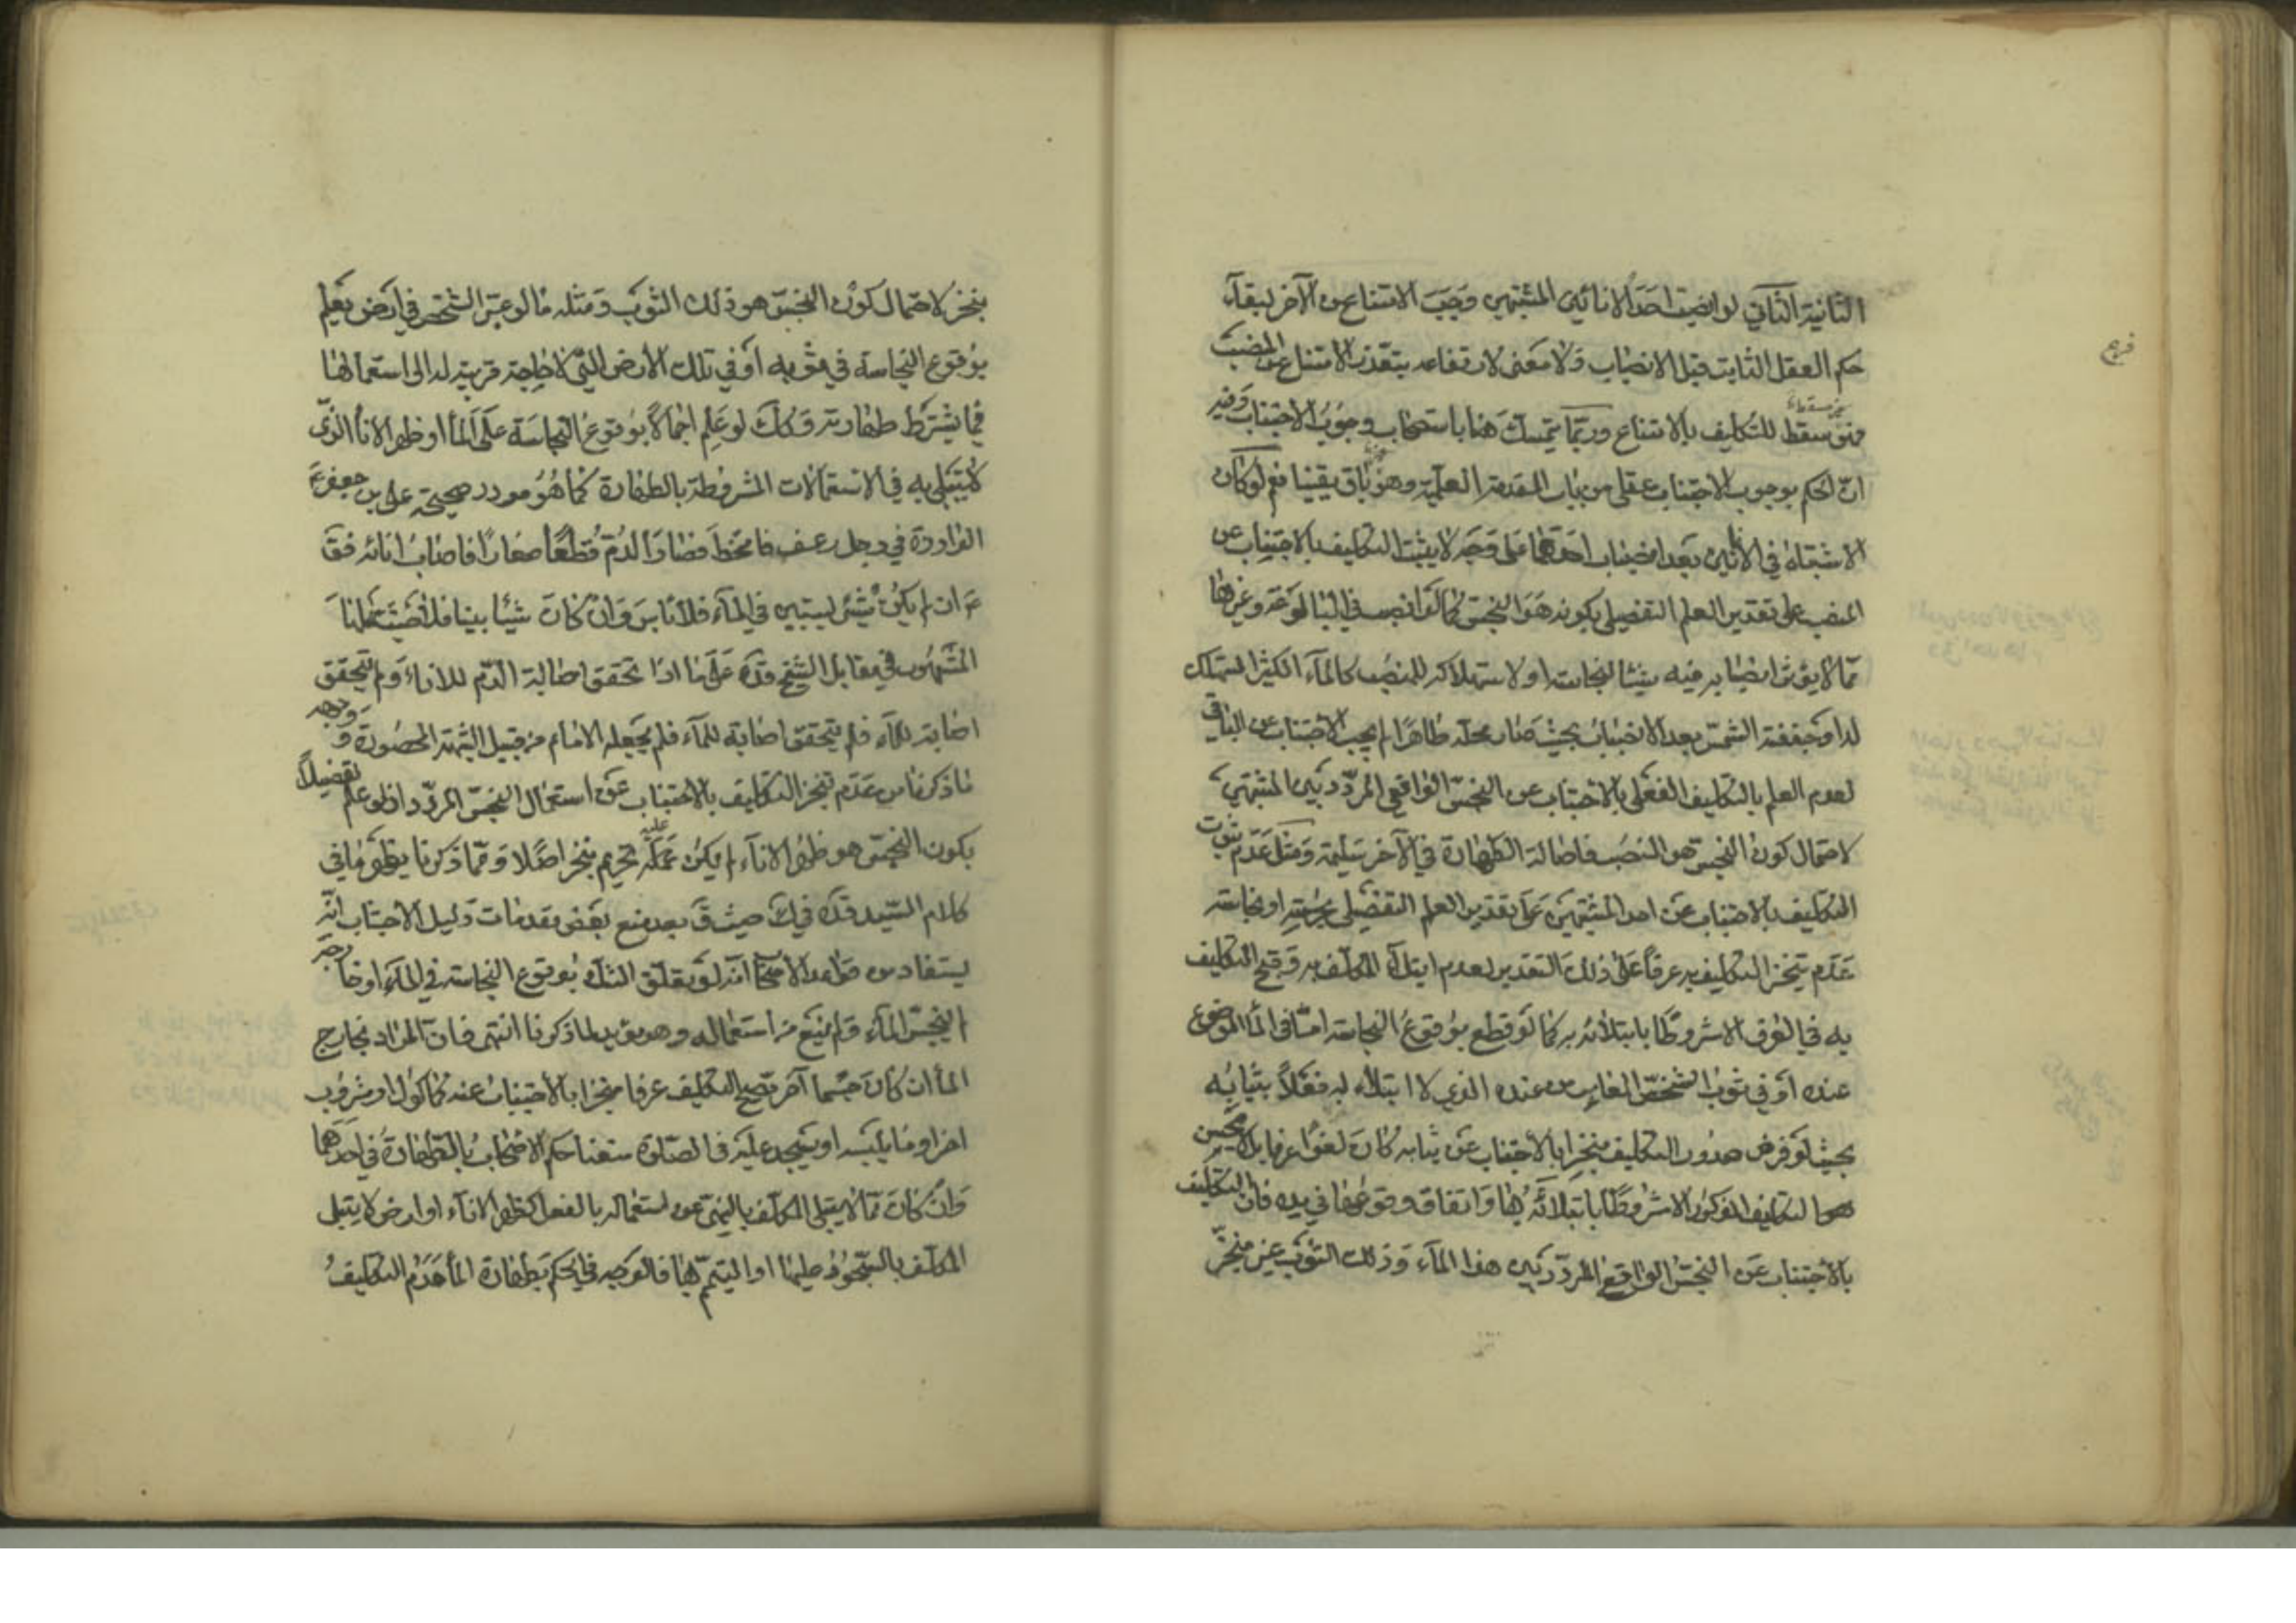 الثانية الثاني لو انصب احد الانائين المشتبهين وجب الامتناع من الآخر لبقاء
فرع
حكم العقل الثابت قبل الانصباب ولا معنى لارتفاعه بتعذر الامتناع عن المنصب
سقط للتكليف بالامتناع وربما يتمسك هنا باستصحاب وجوب الاجتناب وفيه
ان الحكم بوجوب الاجتناب عقلي من باب المقدمة العلمية وهو باق يقينا نعم لو كان
الاشتباه في الانائين بعد انصباب احدهما على وجه لا يثبت التكليف بالاجتناب عن
المنصب على تقدير العلم التفصيلي بكونه هو النجس كما لو انصب في البالوعة وغيرها
مما لا يؤثر انصبابه فيه شيئا لنجاسته او لاستهلاكه للمنصب كالماء الكثير المستهلك
له او جففته الشمس بعد الانصباب بحيث صار محله طاهرا لم يجب الاجتناب عن الباقي
لعدم العلم بالتكليف الفعلي بالاجتناب عن النجس الواقعي المردد بين المشتبهين
لاحتمال كون النجس هو المنصب فاصالة الطهارة في الآخر سليمة ومثل عدم ثبوت
التكليف بالاجتناب عن احد المشتبهين على تقدير العلم التفصيلي بحرمته او نجاسته
عدم تنجز التكليف به عرفا على ذلك التقدير لعدم ابتلاء المكلف به وقبح التكليف
به في العرف الا مشروطا بابتلائه به كما لو قطع بوقوع النجاسة اما في الماء الموضوع
عنده او في ثوب الشخص الغايب عنه الذي لا ابتلاء له فعلا بثيابه
بحيث لو فرض صدور التكليف منجزا بالاجتناب عن ثيابه كان لغوا عرفا بل لا يحسن
التكليف المذكور الا مشروطا بابتلائه بها واتفاق وقوعها في يده فان التكليف
بالاجتناب عن النجس الواقع المردد بين هذا الماء وذلك الثوب غير منجز
ينجز لاحتمال كون النجس هو ذلك الثوب ومثله ما لو عبر الشخص في ارض فعلم
بوقوع النجاسة في ثوبه او في تلك الارض التي لا حاجة قريبة له الى استعمالها
فيما يشترط طهارته وكذلك لو علم اجمالا بوقوع النجاسة على الماء او ظهر الاناء الذي
لا يبتلى به في الاستعمالات المشروطة بالطهارة كما هو مورد صحيحة علي بن جعفر ع
الواردة في رجل رعف فامتخط فصار الدم قطعا صغارا فاصاب انائه فق
ع ان لم يكن شيئ يستبين في الماء فلا باس وان كان شيئا بينا فلا
المشهور في مقابل الشيخ قده على ما اذا تحقق اصابة الدم للاناء ولم يتحقق
اصابته للماء فلم يتحقق اصابة للماء فلم يجعله الامام من قبيل الشبهة المحصورة ووجهه
ما ذكرنا من عدم تنجز التكليف بالاجتناب عن استعمال النجس المردد اذ لو علم تفصيلا
بكون النجس هو ظهر الاناء لم يكن عليه تحريم منجز اصلا ومما ذكرنا يظهر ما في
كلام السيد قده في ك حيث ق بعد منع بعض مقدمات دليل الاجتناب انه
يستفاد من قواعد الاصحاب انه لو تعلق الشك بوقوع النجاسة في الماء او خارجه
لم ينجس الماء ولم يمنع من استعماله وهو مؤيد لما ذكرنا انتهى فان المراد بخارج
الماء ان كان جسما آخر تصح التكليف عرفا منجزا بالاجتناب عنه كماكول او مشروب
اخر او ما يلبسه او يسجد عليه في الصلوة منعنا حكم الاصحاب بالطهارة في احدهما
وان كان مما لا يبتلى المكلف بالنهي عن استعماله بالفعل كظهر الاناء او ارض لا يبتلى
المكلف بالسجود عليها او التيمم بها فالوجه في الحكم بطهارة الماء عدم التكليف